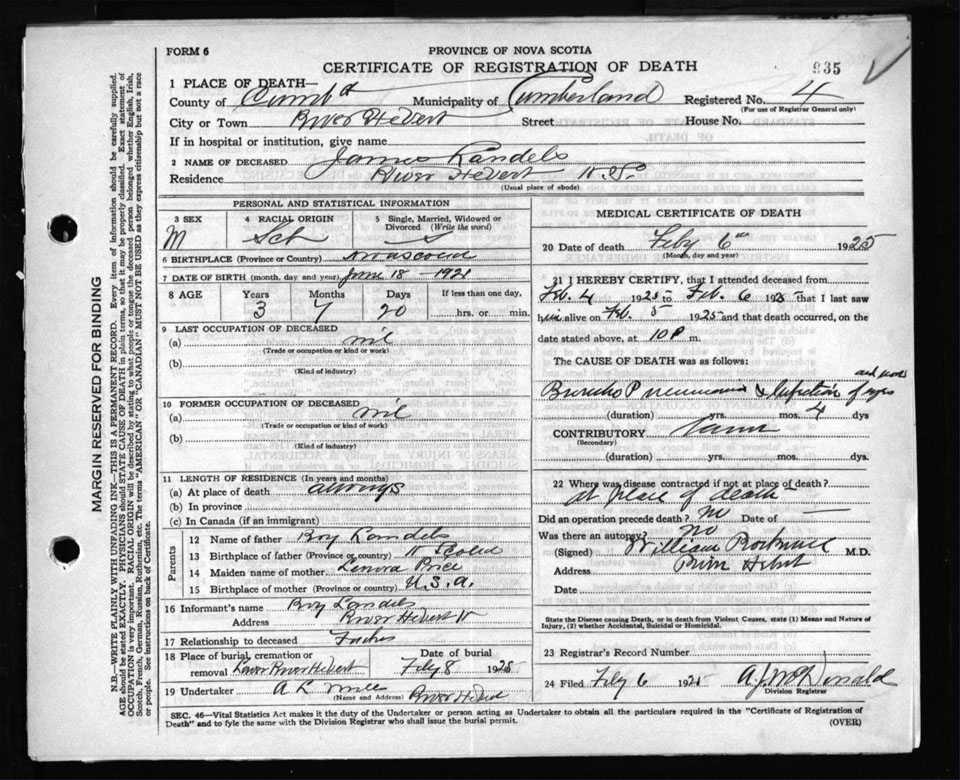 FORM 6
PROVINCE OF NOVA SCOTIA
CERTIFICATE OF REGISTRATION OF DEATH
935
1 PLACE OF DEATH—
County of Cumb'd Municipality of Cumberland Registered No. 4
(For use of Registrar General only)
City or Town River Hebert Street House No.
If in hospital or institution, give name
2 NAME OF DECEASED James Landels
Residence River Hebert
(Usual place of abode)
MARGIN RESERVED FOR BINDING
N.B.—WRITE PLAINLY WITH UNFADING INK—THIS IS A PERMANENT RECORD. Every item of information should be carefully supplied.
AGE should be stated EXACTLY. PHYSICIANS should STATE CAUSE OF DEATH in plain terms, so that it may be properly classified. Exact statement of
OCCUPATION is very important. RACIAL ORIGIN will be described by stating to what people or tongue the deceased person belonged whether English, Irish,
Scotch, French, German, Russian, Ruthenian, etc. The terms "AMERICAN" OR "CANADIAN" MUST NOT BE USED as they express citizenship but not a race
or people. See instructions on back of Certificate.
PERSONAL AND STATISTICAL INFORMATION
3 SEX 4 RACIAL ORIGIN 5 Single, Married, Widowed or Divorced (Write the word)
M Sch S
6 BIRTHPLACE (Province or Country)
7 DATE OF BIRTH (month, day and year) June 18 - 1921
8 AGE Years Months Days If less than one day,
3 7 20 hrs. or min.
9 LAST OCCUPATION OF DECEASED
(a) nil
(Trade or occupation or kind or work)
(b)
(Kind of industry)
10 FORMER OCCUPATION OF DECEASED
(a) nil
(Trade or occupation or kind of work)
(b)
(Kind of industry)
11 LENGTH OF RESIDENCE (In years and months)
(a) At place of death always
(b) In province
(c) In Canada (if an immigrant)
Parents
12 Name of father Roy Landels
13 Birthplace of father (Province or country) N Scotia
14 Maiden name of mother Lenora Price
15 Birthplace of mother (Province or country) U.S.A.
16 Informant's name Roy Landels
Address River Hebert
17 Relationship to deceased Father
18 Place of burial, cremation or removal Lower River Hebert Date of burial Feby 8 1925
19 Undertaker A R
(Name and Address) River Hebert
MEDICAL CERTIFICATE OF DEATH
20 Date of death Feby 6th 1925
(Month, day and year)
21 I HEREBY CERTIFY, that I attended deceased from
Feb. 4 1925 to Feb. 6 1925 that I last saw
him alive on Feb. 5 1925 and that death occurred, on the
date stated above, at 10 P m.
The CAUSE OF DEATH was as follows:
Broncho Pneumonia & Infection of eyes and nose
(duration) yrs. mos. 4 dys
CONTRIBUTORY
(Secondary)
(duration) yrs. mos. dys.
22 Where was disease contracted if not at place of death?
at place of death
Did an operation precede death? no Date of —
Was there an autopsy? no
(Signed) William Rockwell M.D.
Address River Hebert
Date
State the Disease causing Death, or in death from Violent Causes, state (1) Means and Nature of
Injury, (2) whether Accidental, Suicidal or Homicidal.
23 Registrar's Record Number
24 Filed Feby 6 1925 A.J. McDonald
Division Registrar
SEC. 46—Vital Statistics Act makes it the duty of the Undertaker or person acting as Undertaker to obtain all the particulars required in the "Certificate of Registration of
Death" and to fyle the same with the Division Registrar who shall issue the burial permit.
(OVER)